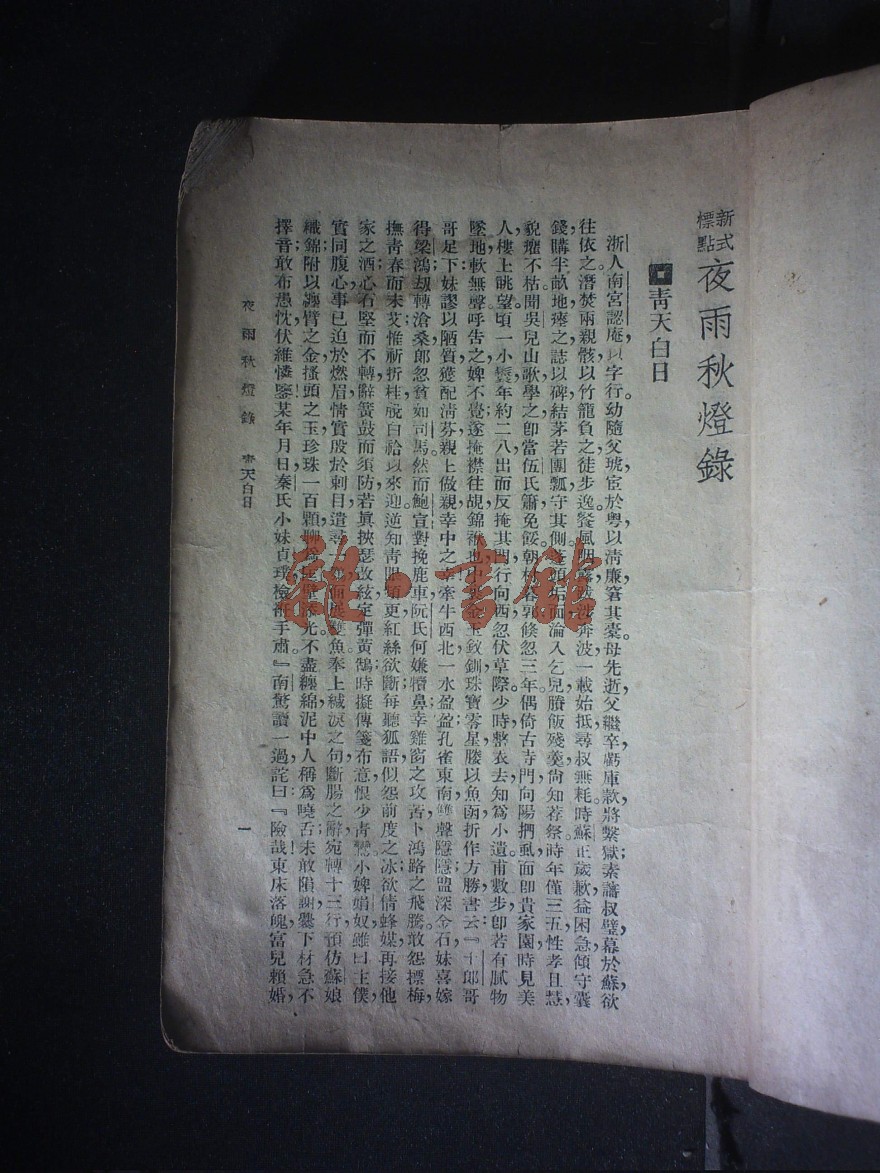 新式標點 夜雨秋燈錄
青天白日
浙人南宮認庵，以字行。幼隨父琥宦於粵，以清廉窘其橐。母先逝，父繼卒，虧庫款，將繫獄；素諳叔璧，幕於蘇，欲
往依之。潛焚兩親骸，以竹籠負之，徒步逸。餐風 奔波一載，始抵。尋叔無耗。時蘇正歲歉，益困急，傾守囊
錢，購半畝地瘞之，誌以碑，結茅若團瓢，守其側。 面淪入乞兒，賸飯殘羹，尙知荐祭。時年僅三五，性孝且慧，
貌癯不枯。聞吳兒山歌，學之，卽當伍氏簫，免餒。朝 郭，倏忽三年。偶倚古寺門，向陽捫虱，面卽貴家園，時見美
人樓上眺望。頃一小鬟，年約二八，出而反掩其門，行向西，忽伏草際。少時，整衣去，知爲小遺。甫數步，卽若有膩物
墜地，軟無聲，呼吿之，婢不覺，遂掩襟往覘，錦 也，中 玉釵釧珠寶零星，媵以魚函，折作方勝，書云：『十郎哥
哥足下：妹謬以陋質，獲配清芬，親上做親，幸中之幸。牽牛西北，一水盈盈；孔雀東南，雙聲隱隱。盟深金石，妹喜嫁
得梁鴻；劫轉滄桑，郎忽貧如司馬。然而鮑宣對挽鹿車，阮氏何嫌犢鼻，幸雞窗之攻苦，卜鴻路之飛騰。敢怨摽梅，
撫靑春而未艾；惟祈折桂，脫白袷以來迎。逆知靑眼 更，紅絲欲斷，每聽狐語，似怨前度之冰；欲倩蜂媒，再接他
家之酒。心石堅而不轉，辭簧鼓而須防。若眞挾瑟改絃，定彈黃鵠；時擬傳箋布意，恨少靑鸞。小婢娟奴，雖曰主僕，
實同腹心。事已迫於燃眉，情實殷於刺目，遣尋 雙魚，奉上緘淚之句，斷腸之辭，宛轉十三行，預仿蘇娘
織錦；附以纏臂之金，搔頭之玉，珍珠一百顆，聊 光。不盡纏綿，泥中人稱爲曉舌；未敢隕謝，爨下材急不
擇音。敢布愚忱，伏維憐鑒！某年月日，秦氏小妹貞璞檢衽手肅。』南驚讀一過，詫曰：『險哉！東床落魄，富兒賴婚，
夜雨秋燈錄 靑天白日
一
雜·書館